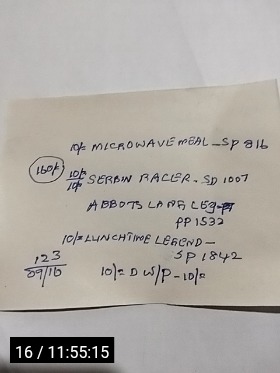 10/= MICROWAVE MEAL - SP 816
160/= 10/= SERBIN RACER - SD 1007
10/=
ABBOTS LANE LEG
PP 1532
10/= LUNCHTIME LEGEND -
SP 1842
123
09/16
10/= D W/P - 10/=
16 / 11:55:15